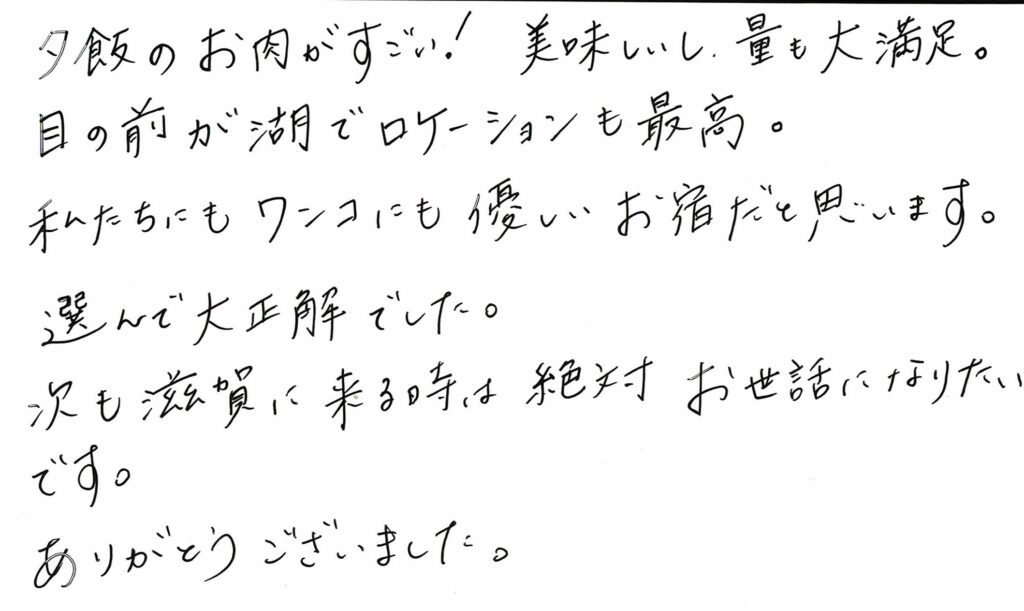 夕飯のお肉がすごい! 美味しいし、量も大満足。
目の前が湖でロケーションも最高。
私たちにもワンコにも優しいお宿だと思います。
選んで大正解でした。
次も滋賀に来る時は絶対お世話になりたい
です。
ありがとうございました。